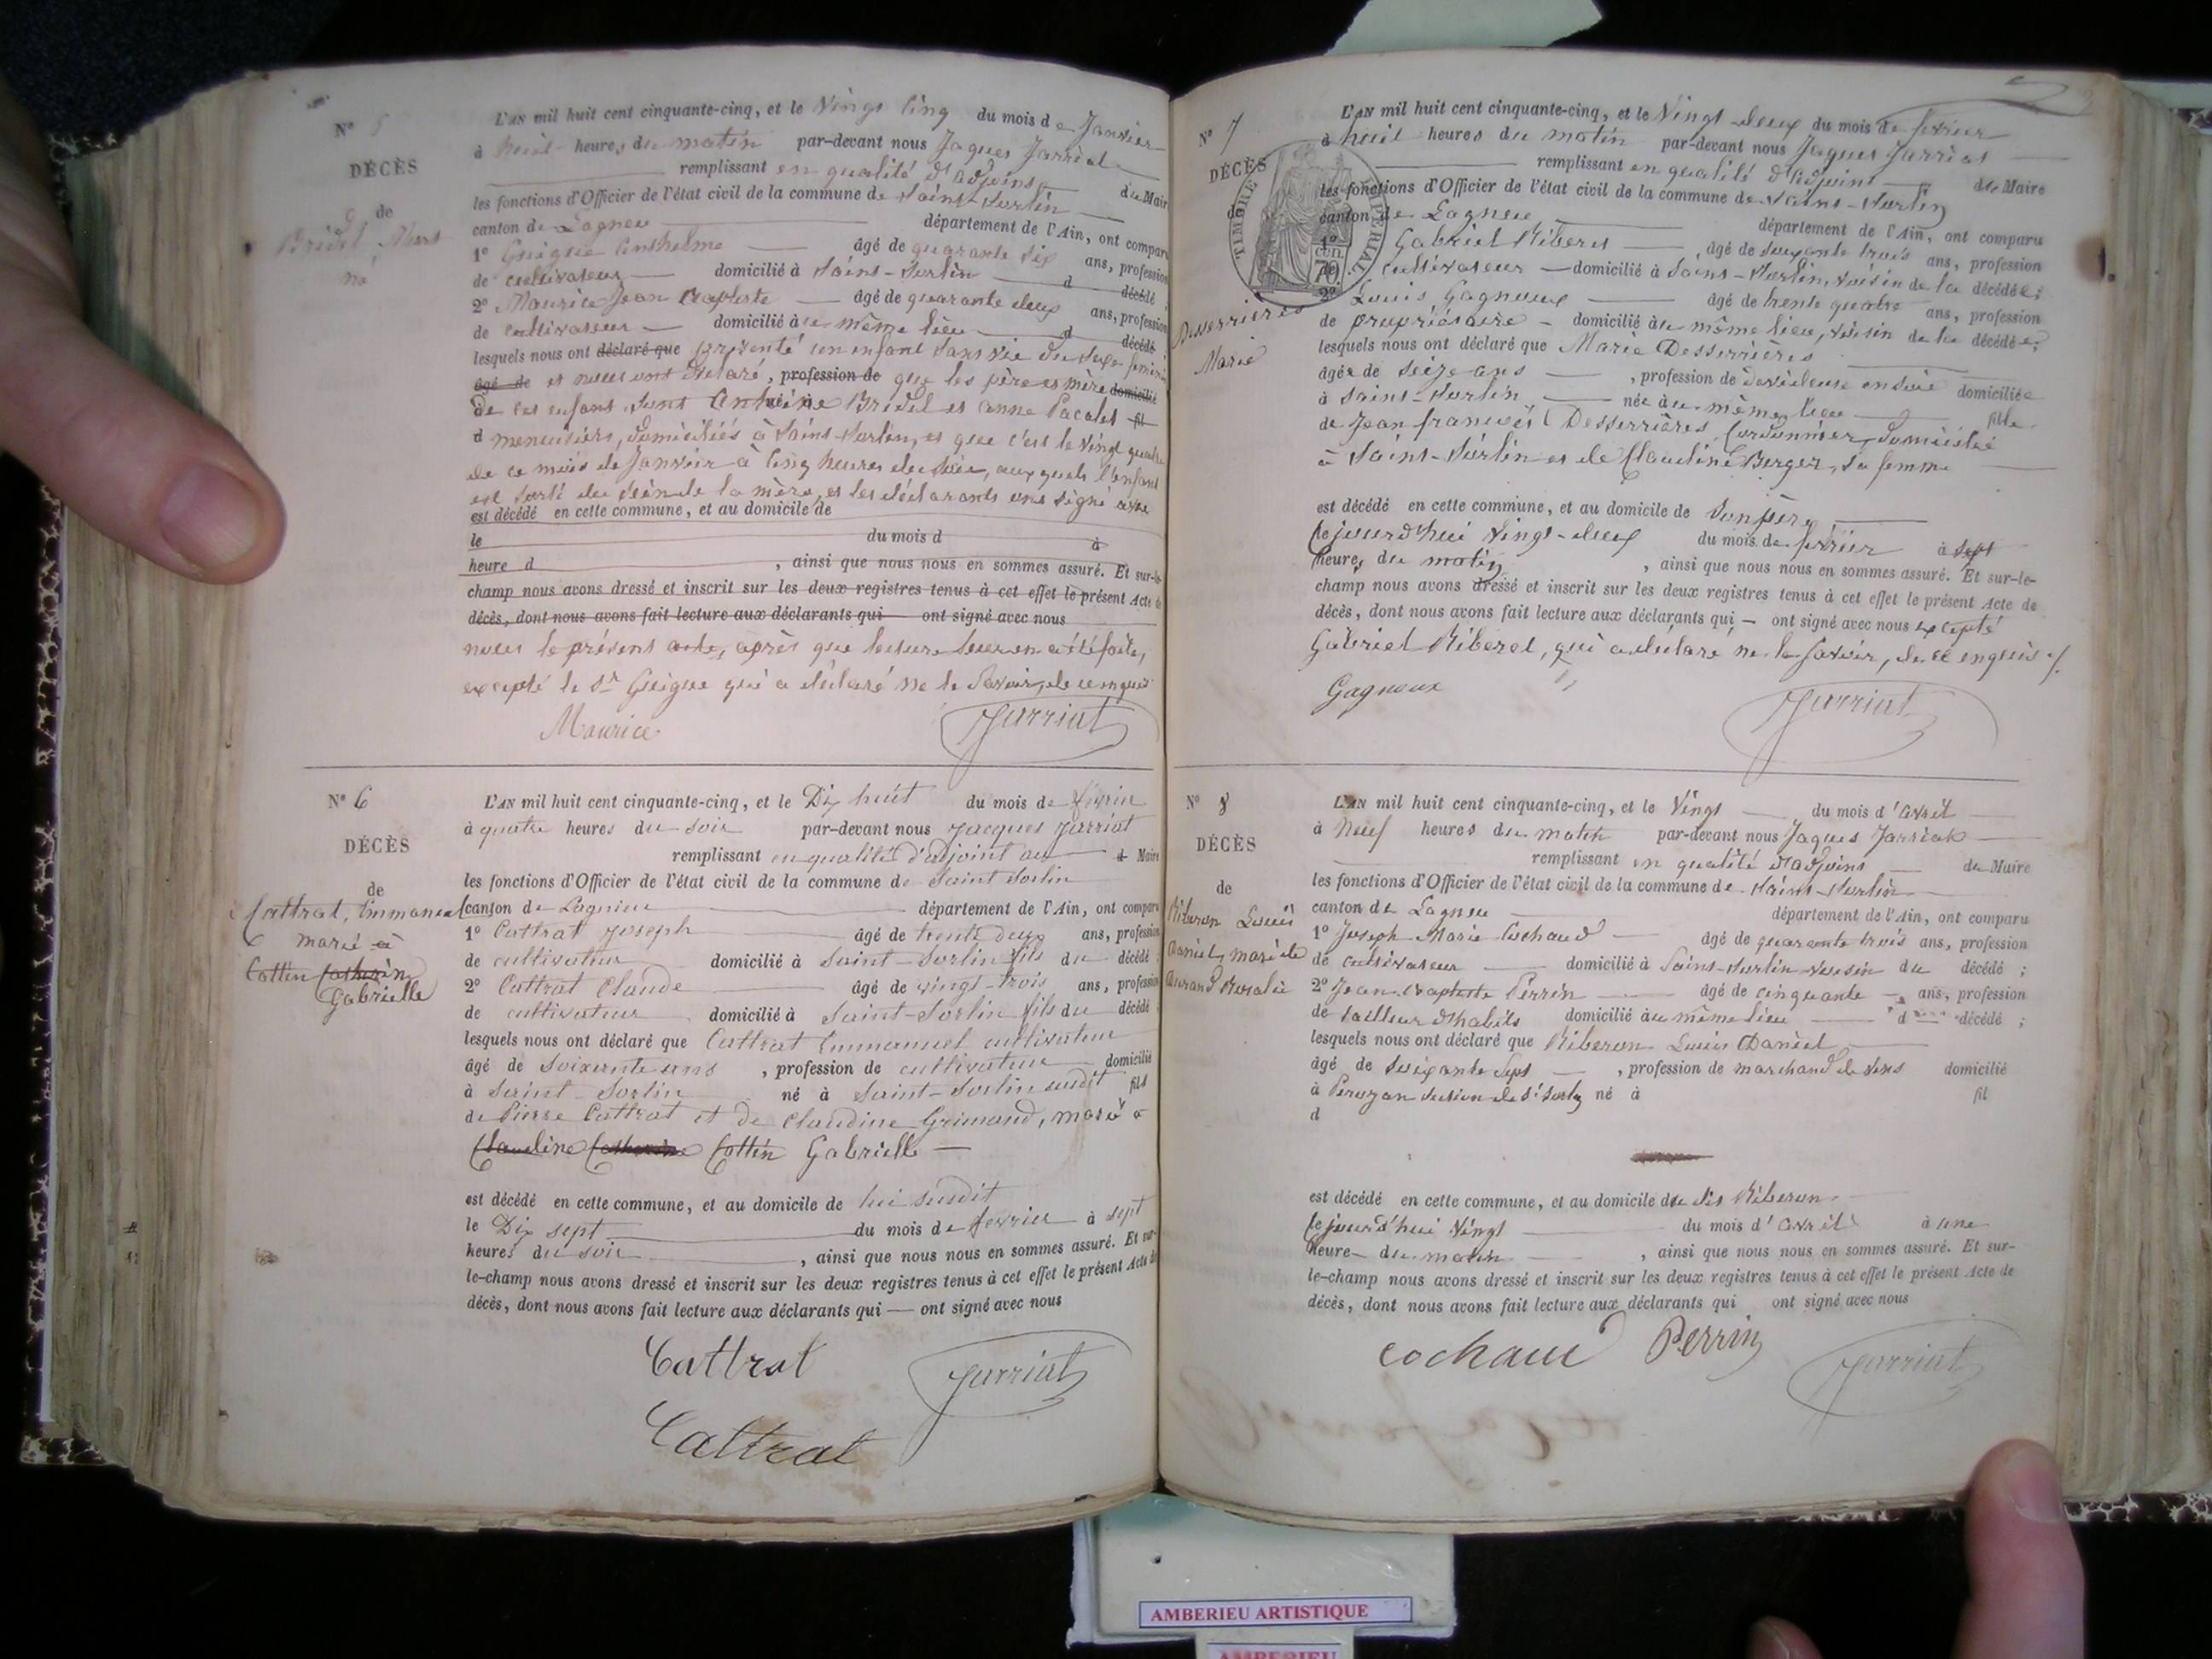 N° 5
DÉCÈS
de
Bridel Mort
né
L'AN mil huit cent cinquante-cinq, et le Vingt Cinq du mois de Janvier
à huit heures du matin par-devant nous Jaques Jarriat
remplissant en qualité d'adjoint du Maire
les fonctions d'Officier de l'état civil de la commune de Saint-Sorlin
canton de Lagneu département de l'Ain, ont comparu
1° Guigue Anthelme âgé de quarante six ans, profession
de cultivateur domicilié à Saint-Sorlin d décédé
2° Maurice Jean Baptiste âgé de quarante deux ans, profession
de cultivateur domicilié au même lieu d décédé
lesquels nous ont déclaré que présenté un enfant sans vie du sexe féminin
âgé de et nous ont déclaré, profession de que les père et mère domicilié
de cet enfant sont Antoine Bridel et Anne Pacalet fil
d menuisiers, domiciliés à Saint-Sorlin, et que c'est le Vingt quatre
de ce mois de Janvier à Cinq heures du soir, auxquels l'enfant
est sorti du sein de la mère, et les déclarants ont signé avec
est décédé en cette commune, et au domicile de
le du mois d à
heure d , ainsi que nous nous en sommes assuré. Et sur-le-
champ nous avons dressé et inscrit sur les deux registres tenus à cet effet le présent Acte de
décès, dont nous avons fait lecture aux déclarants qui ont signé avec nous
nous le présent acte, après que lecture leur en a été faite,
excepté le Sr Guigue qui a déclaré ne le Savoir, de ce enquis
Maurice Jarriat
N° 6
DÉCÈS
de
Cattrat, Emmanuel
marié à
Cottin Catherine
Gabrielle
L'AN mil huit cent cinquante-cinq, et le Dix huit du mois de fevrier
à quatre heures du soir par-devant nous Jacques Jarriat
remplissant en qualité d'adjoint au d Maire
les fonctions d'Officier de l'état civil de la commune de Saint Sorlin
canton de Lagnieu département de l'Ain, ont comparu
1° Cattrat Joseph âgé de trente deux ans, profession
de cultivateur domicilié à Saint-Sorlin fils du décédé
2° Cattrat Claude âgé de vingt-trois ans, profession
de cultivateur domicilié à Saint-Sorlin fils du décédé
lesquels nous ont déclaré que Cattrat Emmanuel cultivateur
âgé de soixante ans , profession de cultivateur domicilié
à Saint-Sorlin né à Saint-Sorlin susdit fils
de Pierre Cattrat et de Claudine Grimand, marié à
Claudine Catherine Cottin Gabrielle
est décédé en cette commune, et au domicile de lui susdit
le Dix sept du mois de fevrier à sept
heures du soir , ainsi que nous nous en sommes assuré. Et sur-
le-champ nous avons dressé et inscrit sur les deux registres tenus à cet effet le présent Acte de
décès, dont nous avons fait lecture aux déclarants qui ont signé avec nous
Cattrat Jarriat
Cattrat
N° 7
DÉCÈS
de
Desserrières
Marie
TIMBRE IMPÉRIAL
70 CEN.
L'AN mil huit cent cinquante-cinq, et le Vingt-deux du mois de fevrier
à huit heures du matin par-devant nous Jaques Jarriat
remplissant en qualité d'Adjoint du Maire
les fonctions d'Officier de l'état civil de la commune de Saint-Sorlin
canton de Lagneu département de l'Ain, ont comparu
1° Gabriel Riberet âgé de soixante trois ans, profession
de cultivateur domicilié à Saint-Sorlin, voisin de la décédée;
2° Louis Gagneux âgé de trente quatre ans, profession
de propriétaire domicilié au même lieu, voisin de la décédée;
lesquels nous ont déclaré que Marie Desserrières
âgée de Seize ans , profession de dévideuse en soie domiciliée
à Saint-Sorlin, née au même lieu fille
de Jean françois Desserrières, Cordonnier, domicilié
à Saint-Sorlin et de Claudine Berger, sa femme
est décédé en cette commune, et au domicile de Son père
le jourd'hui Vingt-deux du mois de fevrier à Sept
heures du matin , ainsi que nous nous en sommes assuré. Et sur-le-
champ nous avons dressé et inscrit sur les deux registres tenus à cet effet le présent Acte de
décès, dont nous avons fait lecture aux déclarants qui ont signé avec nous excepté
Gabriel Riberet, qui a déclaré ne le Savoir, de ce enquis
Gagneux Jarriat
N° 8
DÉCÈS
de
Riberon Louis
Daniel, marié de
Durand Rosalie
L'AN mil huit cent cinquante-cinq, et le Vingt du mois d'Avril
à Neuf heures du matin par-devant nous Jaques Jarriat
remplissant en qualité d'adjoint du Maire
les fonctions d'Officier de l'état civil de la commune de Saint-Sorlin
canton de Lagneu département de l'Ain, ont comparu
1° Joseph Marie Cochaud âgé de quarante trois ans, profession
de cultivateur domicilié à Saint-Sorlin voisin du décédé ;
2° Jean-Baptiste Perrin âgé de cinquante ans, profession
de tailleur d'habits domicilié au même lieu d décédé ;
lesquels nous ont déclaré que Riberon Louis Daniel
âgé de soixante sept , profession de marchand de vins domicilié
à Perozan section de St Sorlin né à fil
d
est décédé en cette commune, et au domicile du dit Riberon
le jourd'hui Vingt du mois d'Avril à une
heure du matin , ainsi que nous nous en sommes assuré. Et sur-
le-champ nous avons dressé et inscrit sur les deux registres tenus à cet effet le présent Acte de
décès, dont nous avons fait lecture aux déclarants qui ont signé avec nous
cochaud Perrin Jarriat
AMBERIEU ARTISTIQUE
AMBERIEU